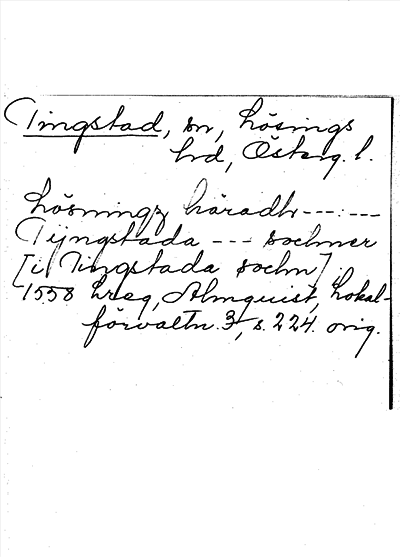 Tingstad, sn, Lösings
hrd, Österg. l.
Lösningz häradh ---:---
Tijngstada --- sochner
[i Tingstada sochn]
1558 hreg, Almquist, Lokal-
förvaltn. 3, s. 224. orig.